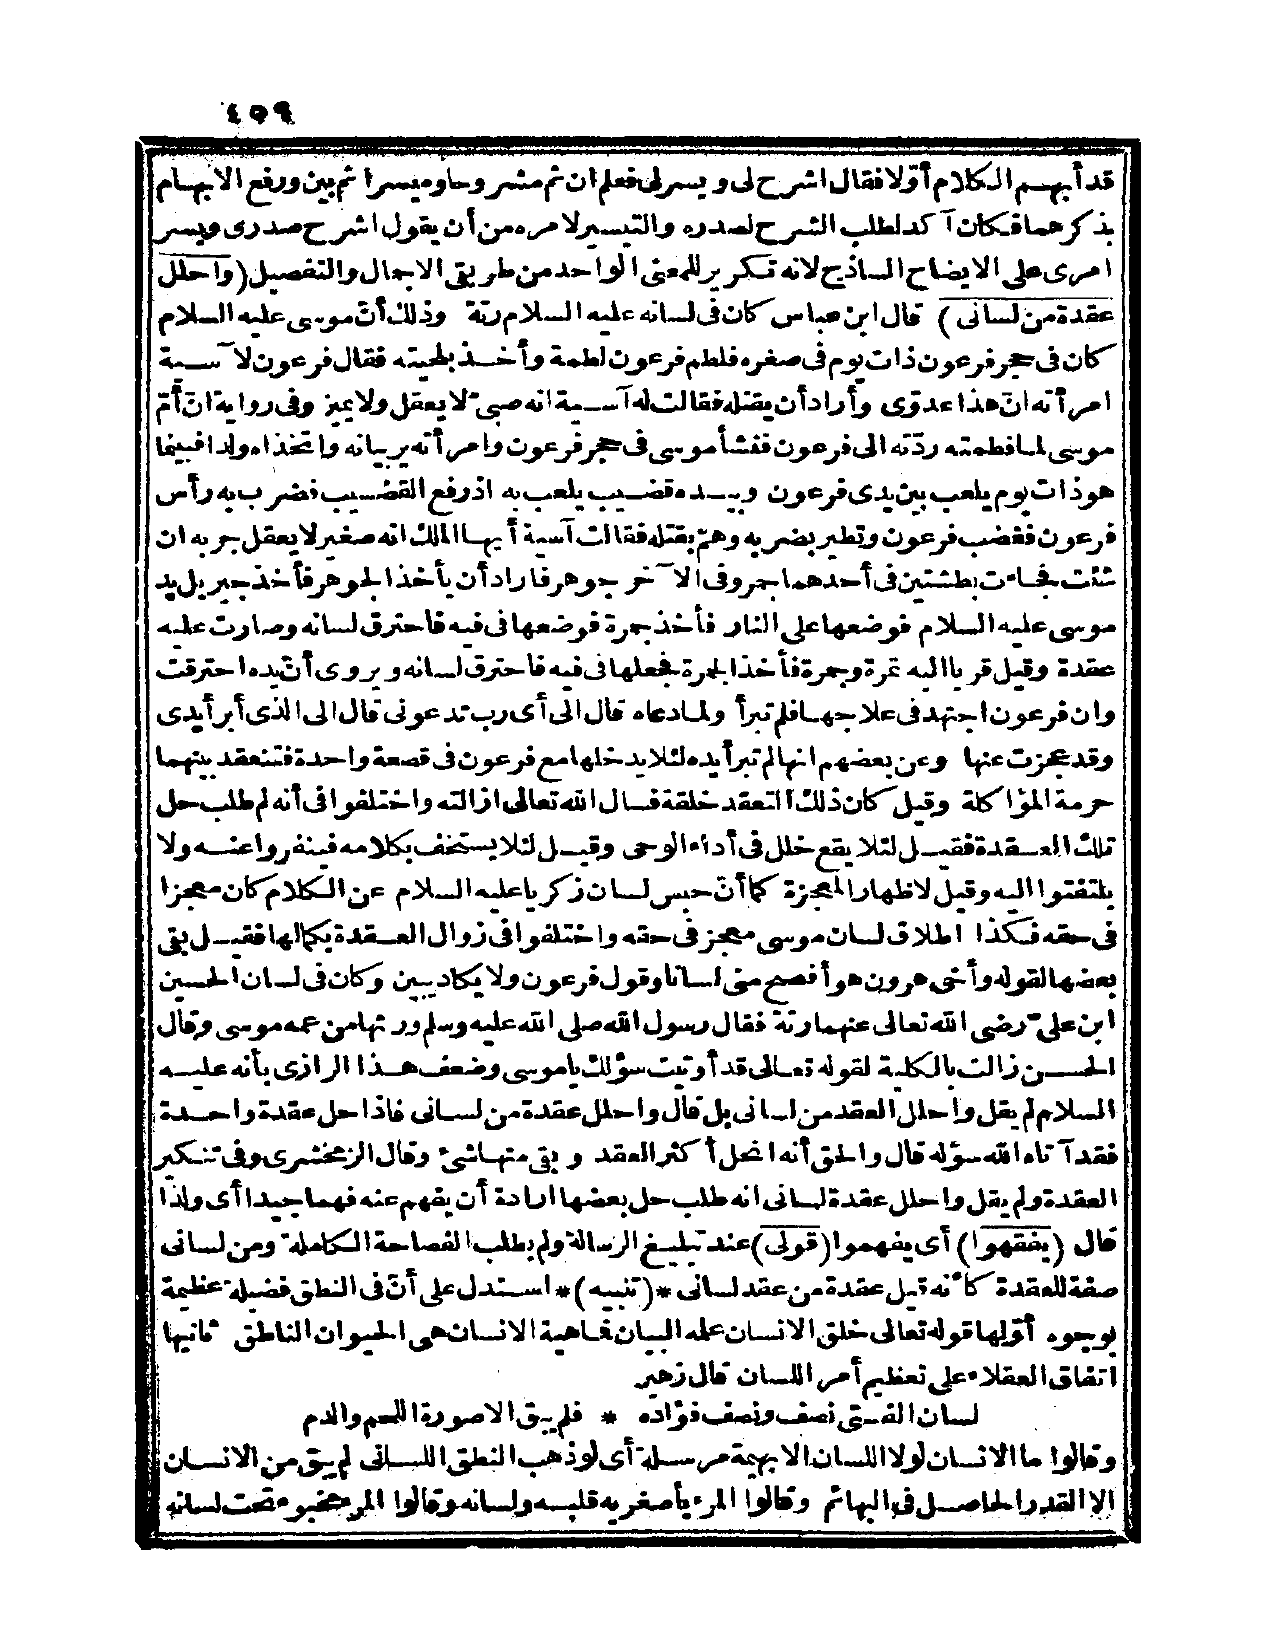 ٤٥٩
قد أبهم الكلام أولا فقال اشرح لى ويسرلى فعلم ان ثم مشروحا وميسرا ثم بين ورفع الابهام
بذكرهما فكان آكد لطلب الشرح لصدره والتيسير لامره من أن يقول اشرح صدرى ويسر
امرى على الايضاح الساذج لانه تكرير للمعنى الواحد من طريقى الاجمال والتفصيل (واحلل
عقدة من لسانى) قال ابن عباس كان فى لسانه عليه السلام رتة وذلك أنّ موسى عليه السلام
كان فى حجر فرعون ذات يوم فى صغره فلطم فرعون لطمة وأخذ بلحيته فقال فرعون لآسية
امرأته انّ هذا عدوّى وأراد أن يقتله فقالت له آسية انه صبىّ لا يعقل ولا يميز وفى رواية انّ أمّ
موسى لما فطمته ردّته الى فرعون فنشأ موسى فى حجر فرعون وامرأته يربيانه واتخذاه ولدا فبينما
هو ذات يوم يلعب بين يدى فرعون وبيده قضيب يلعب به اذ رفع القضيب فضرب به رأس
فرعون فغضب فرعون وتطير بضربه وهمّ بقتله فقالت آسية أيها الملك انه صغير لا يعقل جربه ان
شئت فجاءت بطشتين فى أحدهما جمر وفى الآخر جوهر فاراد أن يأخذ الجوهر فأخذ جبريل يد
موسى عليه السلام فوضعها على النار فأخذ جمرة فوضعها فى فيه فاحترق لسانه وصارت عليه
عقدة وقيل قربا اليه تمرة وجمرة فأخذ الجمرة فجعلها فى فيه فاحترق لسانه ويروى أنّ يده احترقت
وان فرعون اجتهد فى علاجها فلم تبرأ ولما دعاه قال الى أى رب تدعونى قال الى الذى أبرأ يدى
وقد عجزت عنها وعن بعضهم انها لم تبرأ يده لئلا يدخلها مع فرعون فى قصعة واحدة فتنعقد بينهما
حرمة المؤاكلة وقيل كان ذلك التعقد خلقة فسال الله تعالى ازالته واختلفوا فى أنه لم طلب حل
تلك العقدة فقيل لئلا يقع خلل فى أداء الوحى وقيل لئلا يستخف بكلامه فينفروا عنه ولا
يلتفتوا اليه وقيل لاظهار المعجزة كما أنّ حبس لسان زكريا عليه السلام عن الكلام كان معجزا
فى حقه فكذا اطلاق لسان موسى معجز فى حقه واختلفوا فى زوال العقدة بكمالها فقيل بقى
بعضها لقوله وأخى هرون هو أفصح منى لسانا وقول فرعون ولا يكاد يبين وكان فى لسان الحسين
ابن علىّ رضى الله تعالى عنهما رتة فقال رسول الله صلى الله عليه وسلم ورثها من عمه موسى وقال
الحسن زالت بالكلية لقوله تعالى قد أوتيت سؤلك ياموسى وضعف هذا الرازى بأنه عليه
السلام لم يقل واحلل العقد من لسانى بل قال واحلل عقدة من لسانى فاذا حل عقدة واحدة
فقد آتاه الله سؤله قال والحق أنه انحل أكثر العقد وبقى منها شئ وقال الزمخشرى وفى تنكير
العقدة ولم يقل واحلل عقدة لسانى انه طلب حل بعضها ارادة أن يفهم عنه فهما جيدا أى ولذا
قال (يفقهوا) أى يفهموا (قولى) عند تبليغ الرسالة ولم يطلب الفصاحة الكاملة ومن لسانى
صفة للعقدة كأنه قيل عقدة من عقد لسانى *(تنبيه)* استدل على أنّ فى النطق فضيلة عظيمة
بوجوه أوّلها قوله تعالى خلق الانسان علمه البيان فماهية الانسان هى الحيوان الناطق ثانيها
اتفاق العقلاء على تعظيم أمر اللسان قال زهير
لسان الفتى نصف ونصف فؤاده * فلم يبق الا صورة اللحم والدم
وقالوا ما الانسان لولا اللسان الا بهيمة مرسلة أى لو ذهب النطق اللسانى لم يبق من الانسان
الا القدر الحاصل فى البهائم وقالوا المرء بأصغريه قلبه ولسانه وقالوا المرء مخبوء تحت لسانه